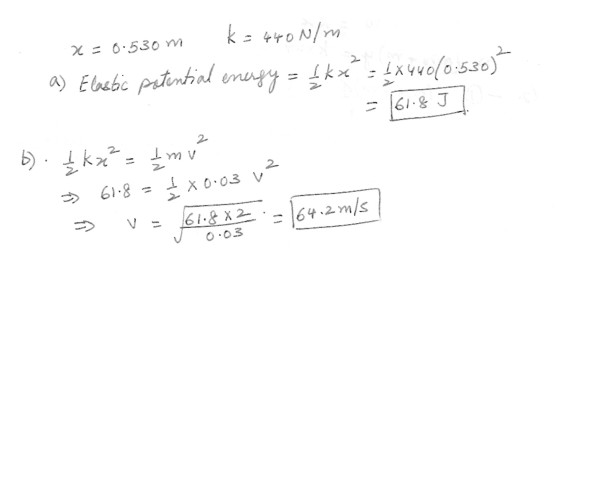 x = 0.530 m k = 440 N/m
a) Elastic potential energy = 1/2 kx² = 1/2 × 440 (0.530)²
= 61.8 J
b). 1/2 kx² = 1/2 m v²
⇒ 61.8 = 1/2 × 0.03 v²
⇒ v = √(61.8 × 2 / 0.03) = 64.2 m/s